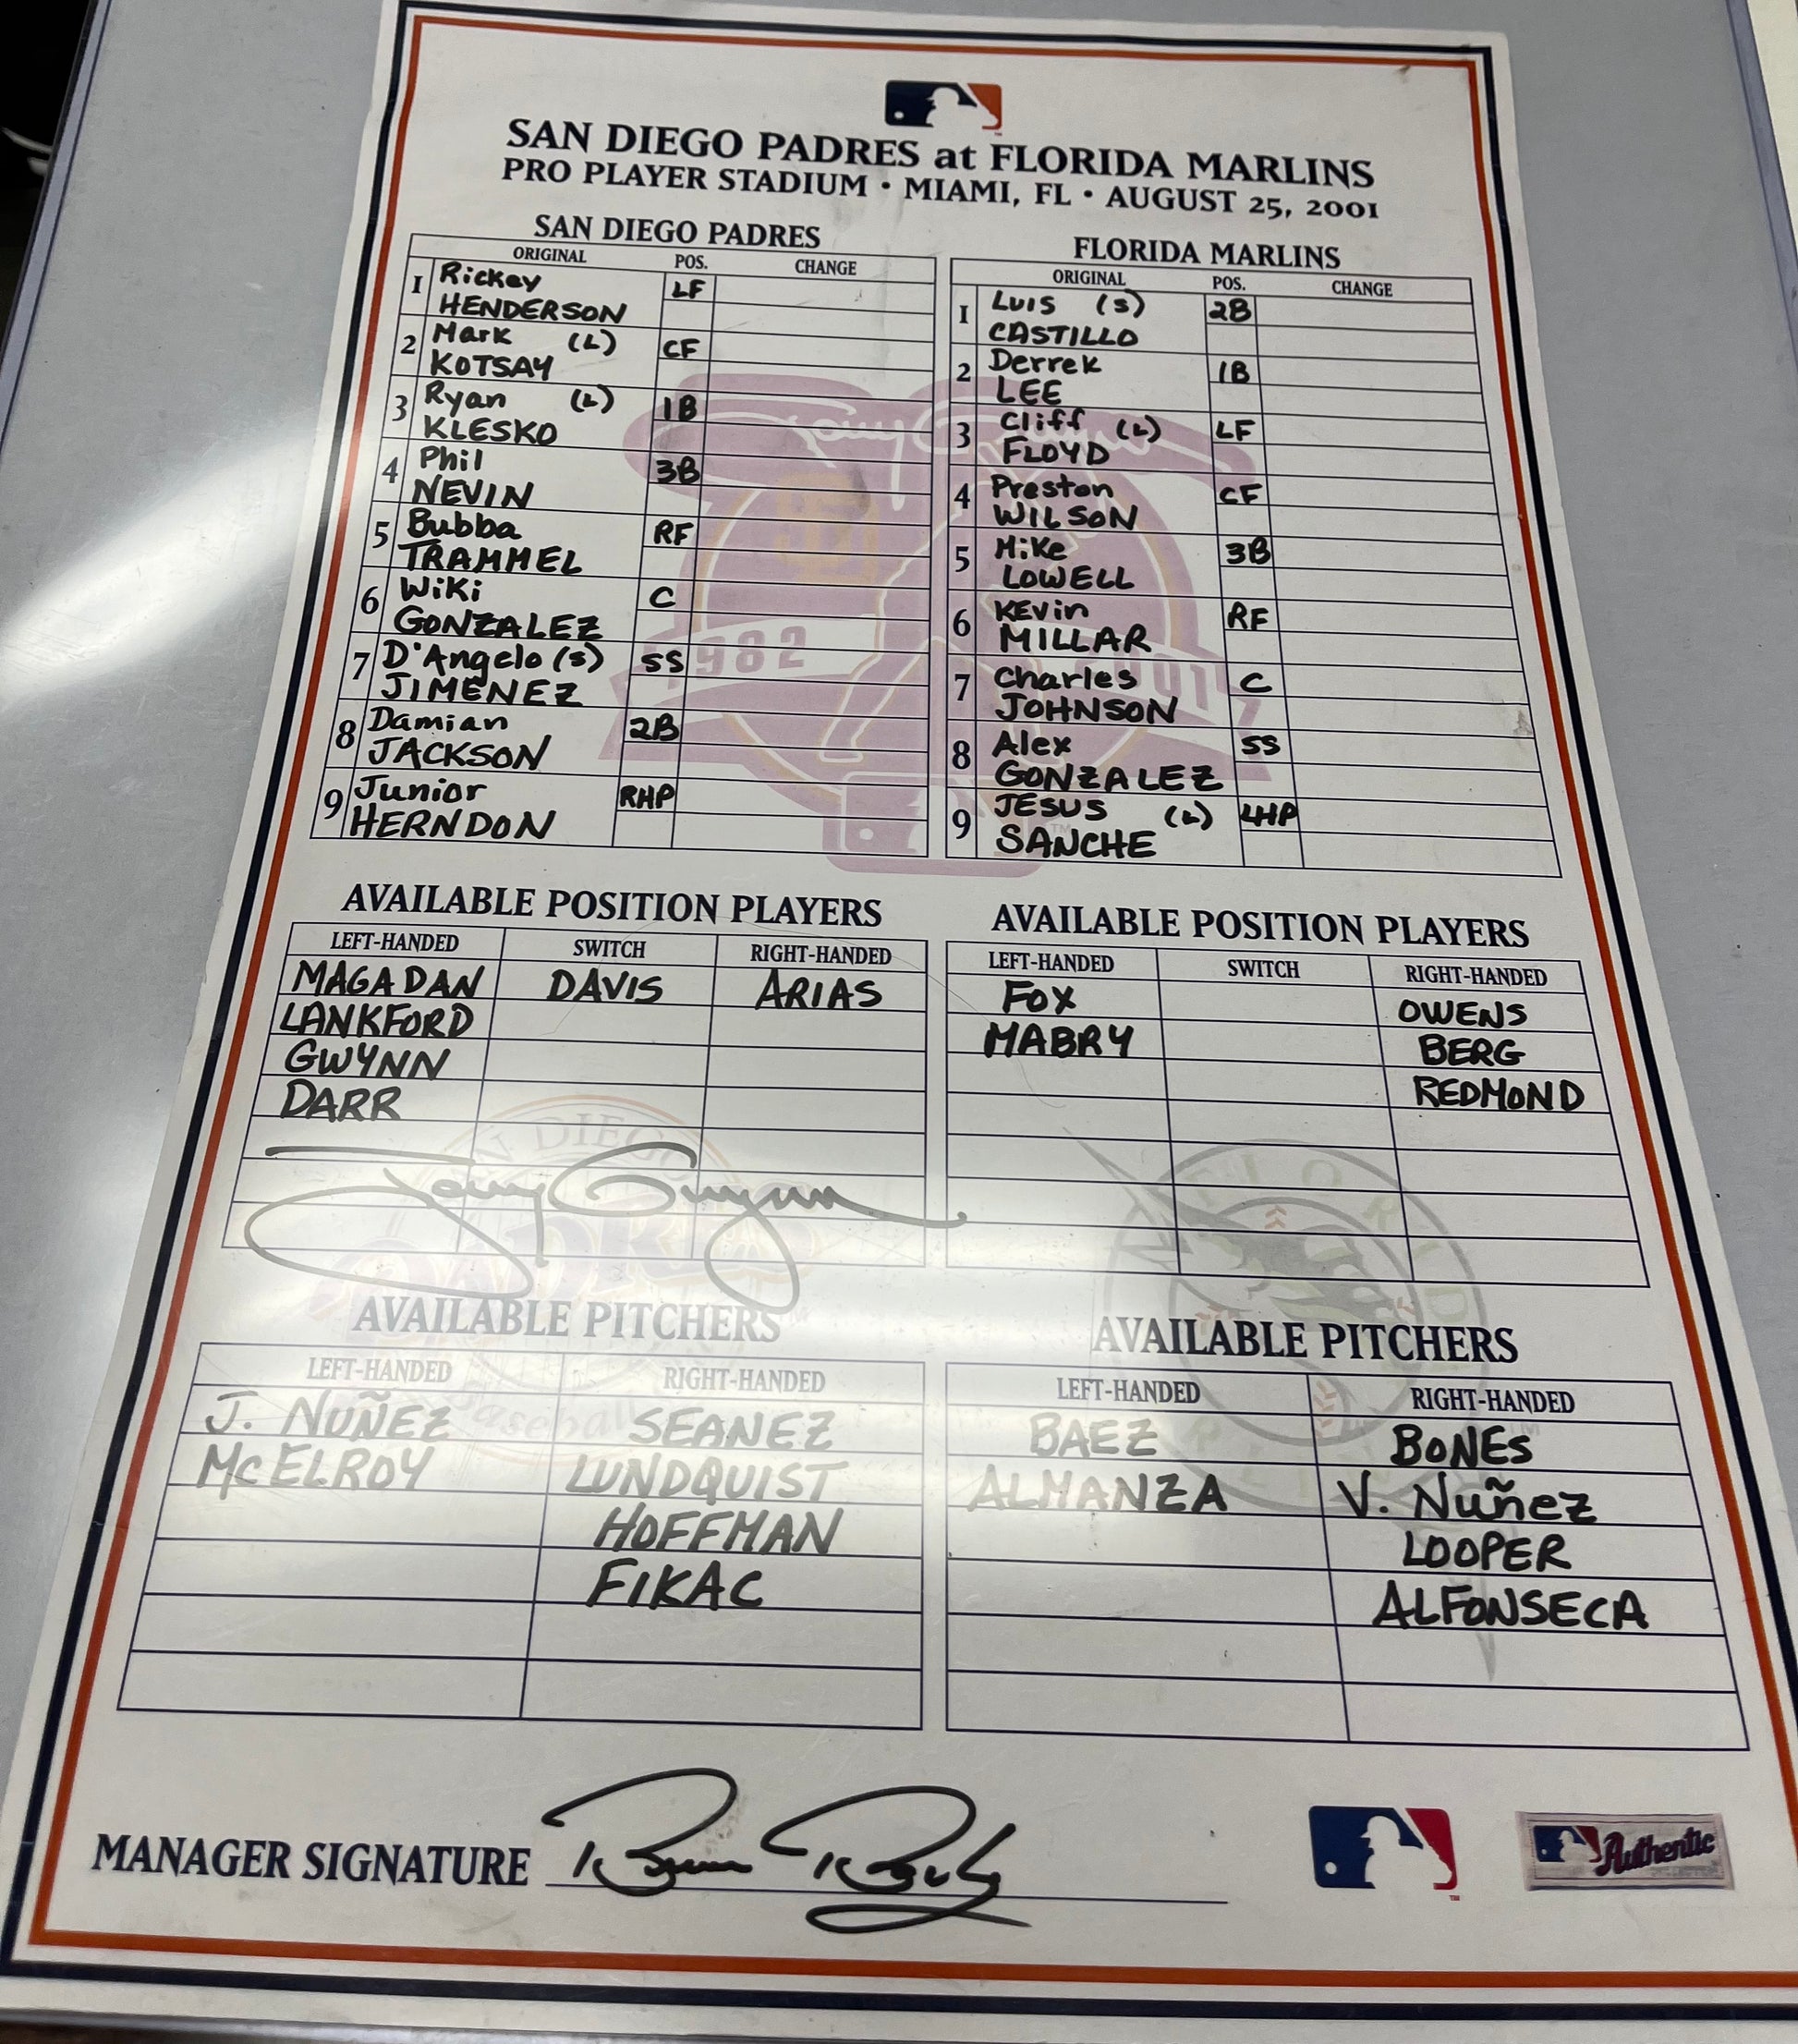 SAN DIEGO PADRES at FLORIDA MARLINS
PRO PLAYER STADIUM • MIAMI, FL • AUGUST 25, 2001
SAN DIEGO PADRES
ORIGINAL POS. CHANGE
1 Rickey HENDERSON LF
2 Mark (L) KOTSAY CF
3 Ryan (L) KLESKO 1B
4 Phil NEVIN 3B
5 Bubba TRAMMEL RF
6 Wiki GONZALEZ C
7 D'Angelo (S) JIMENEZ SS
8 Damian JACKSON 2B
9 Junior HERNDON RHP
FLORIDA MARLINS
ORIGINAL POS. CHANGE
1 Luis (S) CASTILLO 2B
2 Derrek LEE 1B
3 Cliff (L) FLOYD LF
4 Preston WILSON CF
5 Mike LOWELL 3B
6 Kevin MILLAR RF
7 Charles JOHNSON C
8 Alex GONZALEZ SS
9 JESUS (L) SANCHE LHP
1982 2001
AVAILABLE POSITION PLAYERS
LEFT-HANDED SWITCH RIGHT-HANDED
MAGADAN DAVIS ARIAS
LANKFORD
GWYNN
DARR
Tony Gwynn
AVAILABLE POSITION PLAYERS
LEFT-HANDED SWITCH RIGHT-HANDED
FOX OWENS
MABRY BERG
REDMOND
AVAILABLE PITCHERS
LEFT-HANDED RIGHT-HANDED
J. NUÑEZ SEANEZ
McELROY LUNDQUIST
HOFFMAN
FIKAC
AVAILABLE PITCHERS
LEFT-HANDED RIGHT-HANDED
BAEZ BONES
ALMANZA V. Nuñez
LOOPER
ALFONSECA
MANAGER SIGNATURE
Authentic